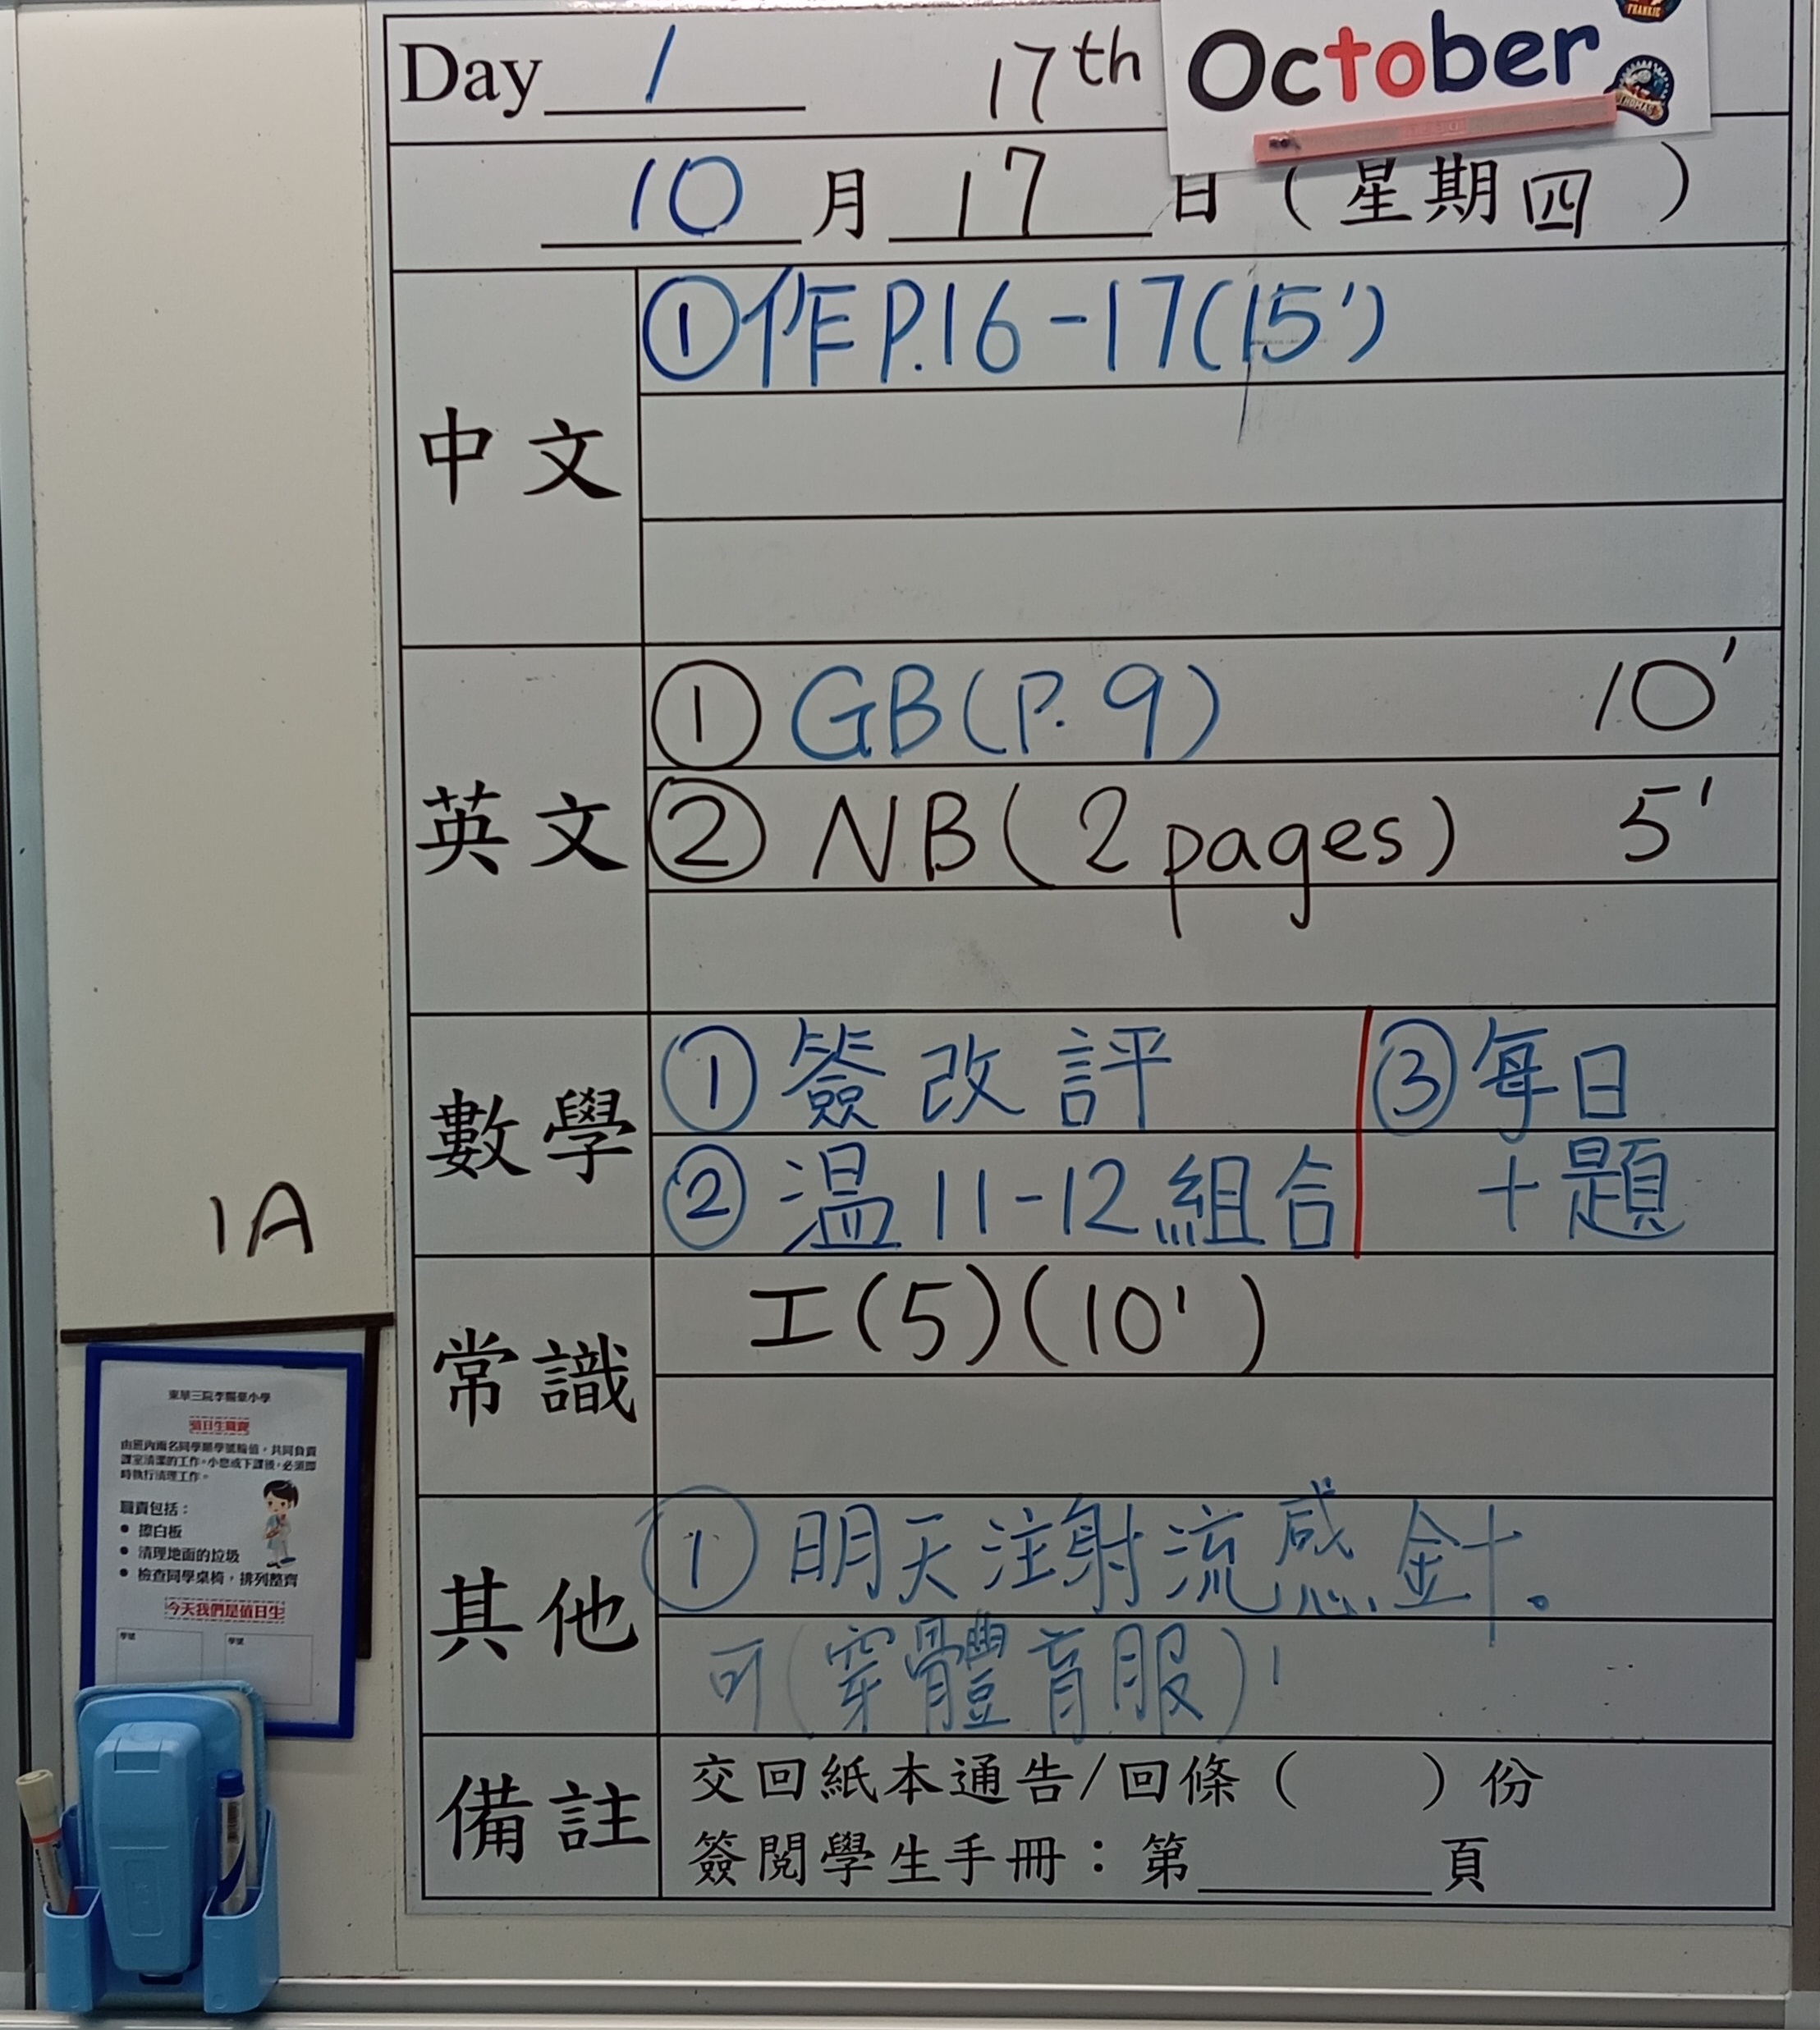 Day 1 17th October
10月17日(星期四)
中文
①作P.16-17(15')
英文
① GB(P.9) 10'
② NB(2 pages) 5'
數學
①簽改評
②溫11-12組合
③每日
十題
常識
工(5)(10')
其他
①明天注射流感針。
可(穿體育服)!
備註
交回紙本通告/回條( )份
簽閱學生手冊:第____頁
1A
東華三院李賜豪小學
值日生職責
由班內兩名同學順學號輪值,共同負責
課室清潔的工作。小息或下課後,必須即
時執行清理工作。
職責包括:
• 擦白板
• 清理地面的垃圾
• 檢查同學桌椅,排列整齊
今天我們是值日生
學號 學號